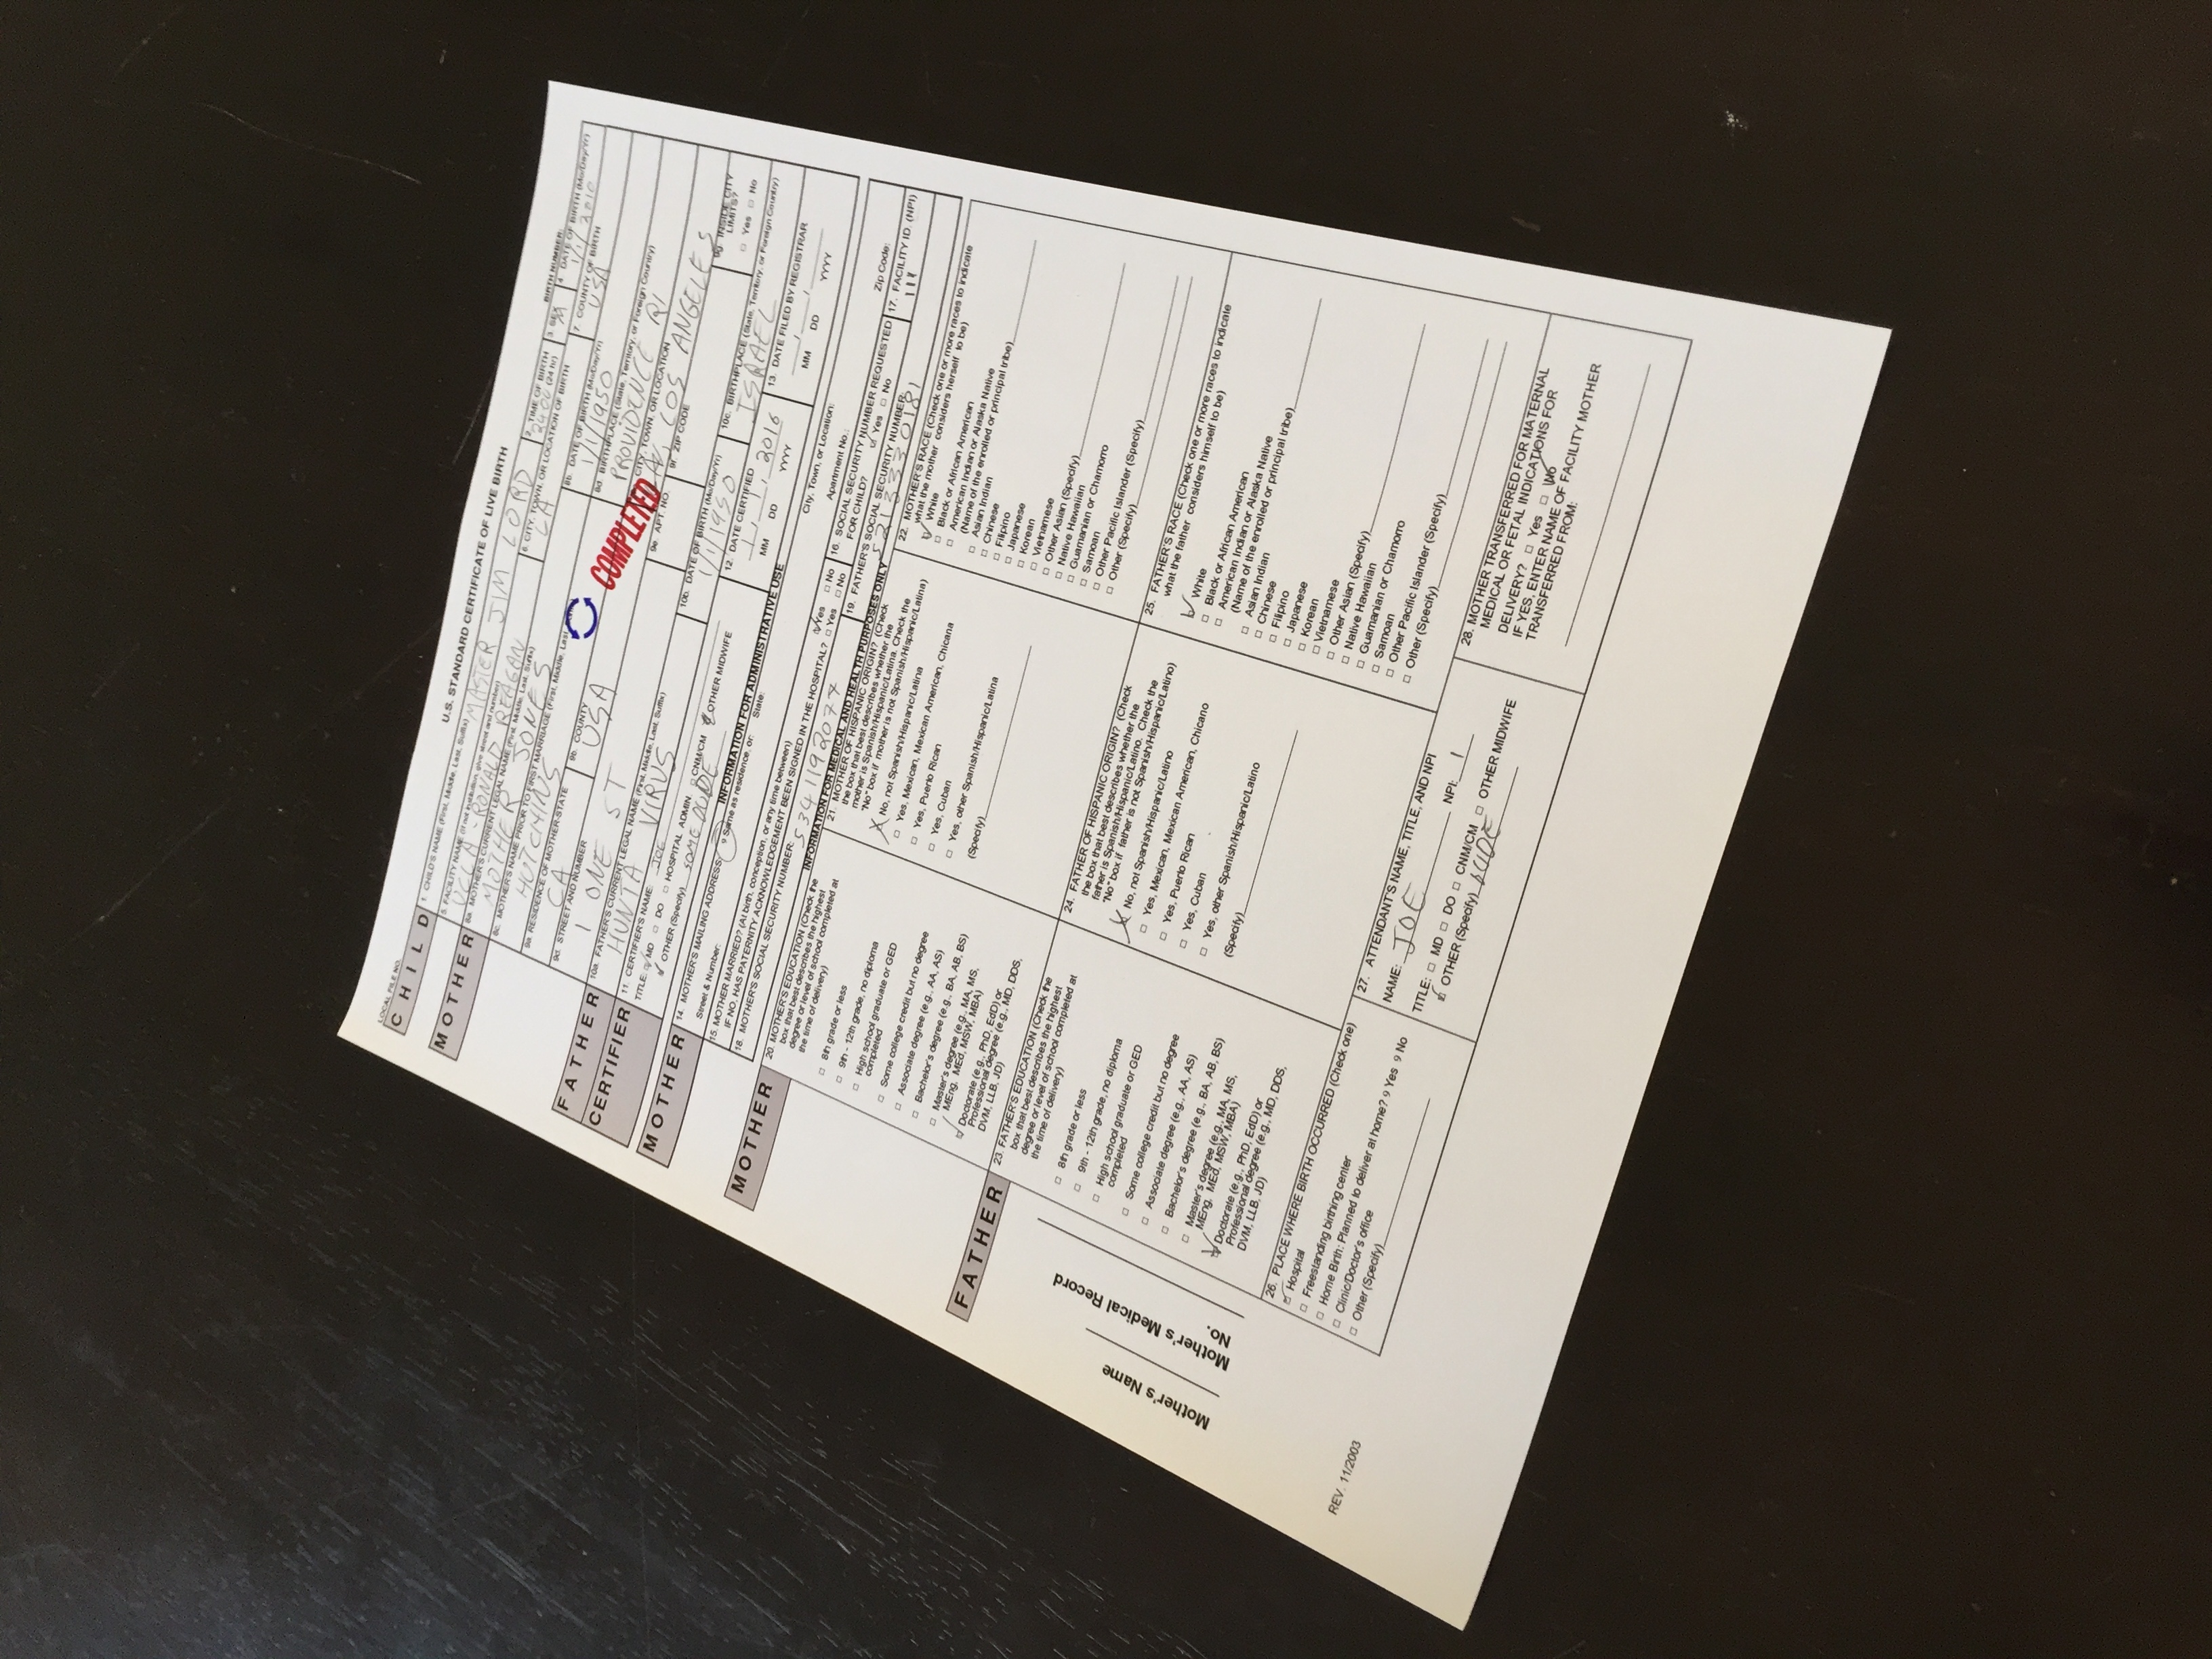 LOCAL FILE NO.
U.S. STANDARD CERTIFICATE OF LIVE BIRTH
BIRTH NUMBER:
CHILD
1. CHILD'S NAME (First, Middle, Last, Suffix) MASTER JIM LORD
2. TIME OF BIRTH (24 hr) 2400
3. SEX M
4. DATE OF BIRTH (Mo/Day/Yr) 1/1/2010
5. FACILITY NAME (If not institution, give street and number)
UCLA - RONALD REAGAN
6. CITY, TOWN, OR LOCATION OF BIRTH
LA
7. COUNTY OF BIRTH
USA
MOTHER
8a. MOTHER'S CURRENT LEGAL NAME (First, Middle, Last, Suffix)
MOTHER JONES
8b. DATE OF BIRTH (Mo/Day/Yr)
1/1/1950
8c. MOTHER'S NAME PRIOR TO FIRST MARRIAGE (First, Middle, Last
HUTCHINS
8d. BIRTHPLACE (State, Territory, or Foreign Country)
PROVIDENCE RI
9a. RESIDENCE OF MOTHER-STATE
CA
9b. COUNTY
USA
COMPLETED
CITY, TOWN, OR LOCATION
LOS ANGELES
9d. STREET AND NUMBER
1 ONE ST
9e. APT. NO.
9f. ZIP CODE
9g. INSIDE CITY LIMITS?
Yes No
FATHER
10a. FATHER'S CURRENT LEGAL NAME (First, Middle, Last, Suffix)
HUNTA VIRUS
10b. DATE OF BIRTH (Mo/Day/Yr)
1/1/1950
10c. BIRTHPLACE (State, Territory, or Foreign Country)
ISRAEL
CERTIFIER
11. CERTIFIER'S NAME: JOE
TITLE: MD DO HOSPITAL ADMIN. CNM/CM OTHER MIDWIFE
OTHER (Specify) SOME DUDE
12. DATE CERTIFIED
1 / 1 / 2016
MM DD YYYY
13. DATE FILED BY REGISTRAR
/ /
MM DD YYYY
INFORMATION FOR ADMINISTRATIVE USE
MOTHER
14. MOTHER'S MAILING ADDRESS: 9 Same as residence, or: State: City, Town, or Location:
Street & Number: Apartment No.: Zip Code:
15. MOTHER MARRIED? (At birth, conception, or any time between) Yes No
IF NO, HAS PATERNITY ACKNOWLEDGEMENT BEEN SIGNED IN THE HOSPITAL? Yes No
16. SOCIAL SECURITY NUMBER REQUESTED
FOR CHILD? Yes No
17. FACILITY ID. (NPI)
111
18. MOTHER'S SOCIAL SECURITY NUMBER: 5341192077
19. FATHER'S SOCIAL SECURITY NUMBER:
INFORMATION FOR MEDICAL AND HEALTH PURPOSES ONLY
MOTHER
20. MOTHER'S EDUCATION (Check the
box that best describes the highest
degree or level of school completed at
the time of delivery)
8th grade or less
9th - 12th grade, no diploma
High school graduate or GED
completed
Some college credit but no degree
Associate degree (e.g., AA, AS)
Bachelor's degree (e.g., BA, AB, BS)
Master's degree (e.g., MA, MS,
MEng, MEd, MSW, MBA)
Doctorate (e.g., PhD, EdD) or
Professional degree (e.g., MD, DDS,
DVM, LLB, JD)
21. MOTHER OF HISPANIC ORIGIN? (Check
the box that best describes whether the
mother is Spanish/Hispanic/Latina. Check the
"No" box if mother is not Spanish/Hispanic/Latina)
No, not Spanish/Hispanic/Latina
Yes, Mexican, Mexican American, Chicana
Yes, Puerto Rican
Yes, Cuban
Yes, other Spanish/Hispanic/Latina
(Specify)
22. MOTHER'S RACE (Check one or more races to indicate
what the mother considers herself to be)
White
Black or African American
American Indian or Alaska Native
(Name of the enrolled or principal tribe)
Asian Indian
Chinese
Filipino
Japanese
Korean
Vietnamese
Other Asian (Specify)
Native Hawaiian
Guamanian or Chamorro
Samoan
Other Pacific Islander (Specify)
Other (Specify)
FATHER
23. FATHER'S EDUCATION (Check the
box that best describes the highest
degree or level of school completed at
the time of delivery)
8th grade or less
9th - 12th grade, no diploma
High school graduate or GED
completed
Some college credit but no degree
Associate degree (e.g., AA, AS)
Bachelor's degree (e.g., BA, AB, BS)
Master's degree (e.g., MA, MS,
MEng, MEd, MSW, MBA)
Doctorate (e.g., PhD, EdD) or
Professional degree (e.g., MD, DDS,
DVM, LLB, JD)
24. FATHER OF HISPANIC ORIGIN? (Check
the box that best describes whether the
father is Spanish/Hispanic/Latino. Check the
"No" box if father is not Spanish/Hispanic/Latino)
No, not Spanish/Hispanic/Latino
Yes, Mexican, Mexican American, Chicano
Yes, Puerto Rican
Yes, Cuban
Yes, other Spanish/Hispanic/Latino
(Specify)
25. FATHER'S RACE (Check one or more races to indicate
what the father considers himself to be)
White
Black or African American
American Indian or Alaska Native
(Name of the enrolled or principal tribe)
Asian Indian
Chinese
Filipino
Japanese
Korean
Vietnamese
Other Asian (Specify)
Native Hawaiian
Guamanian or Chamorro
Samoan
Other Pacific Islander (Specify)
Other (Specify)
Mother's Name
Mother's Medical Record
No.
26. PLACE WHERE BIRTH OCCURRED (Check one)
Hospital
Freestanding birthing center
Home Birth: Planned to deliver at home? 9 Yes 9 No
Clinic/Doctor's office
Other (Specify)
27. ATTENDANT'S NAME, TITLE, AND NPI
NAME: JOE NPI: 1
TITLE: MD DO CNM/CM OTHER MIDWIFE
OTHER (Specify) DUDE
28. MOTHER TRANSFERRED FOR MATERNAL
MEDICAL OR FETAL INDICATIONS FOR
DELIVERY? Yes No
IF YES, ENTER NAME OF FACILITY MOTHER
TRANSFERRED FROM:
REV. 11/2003